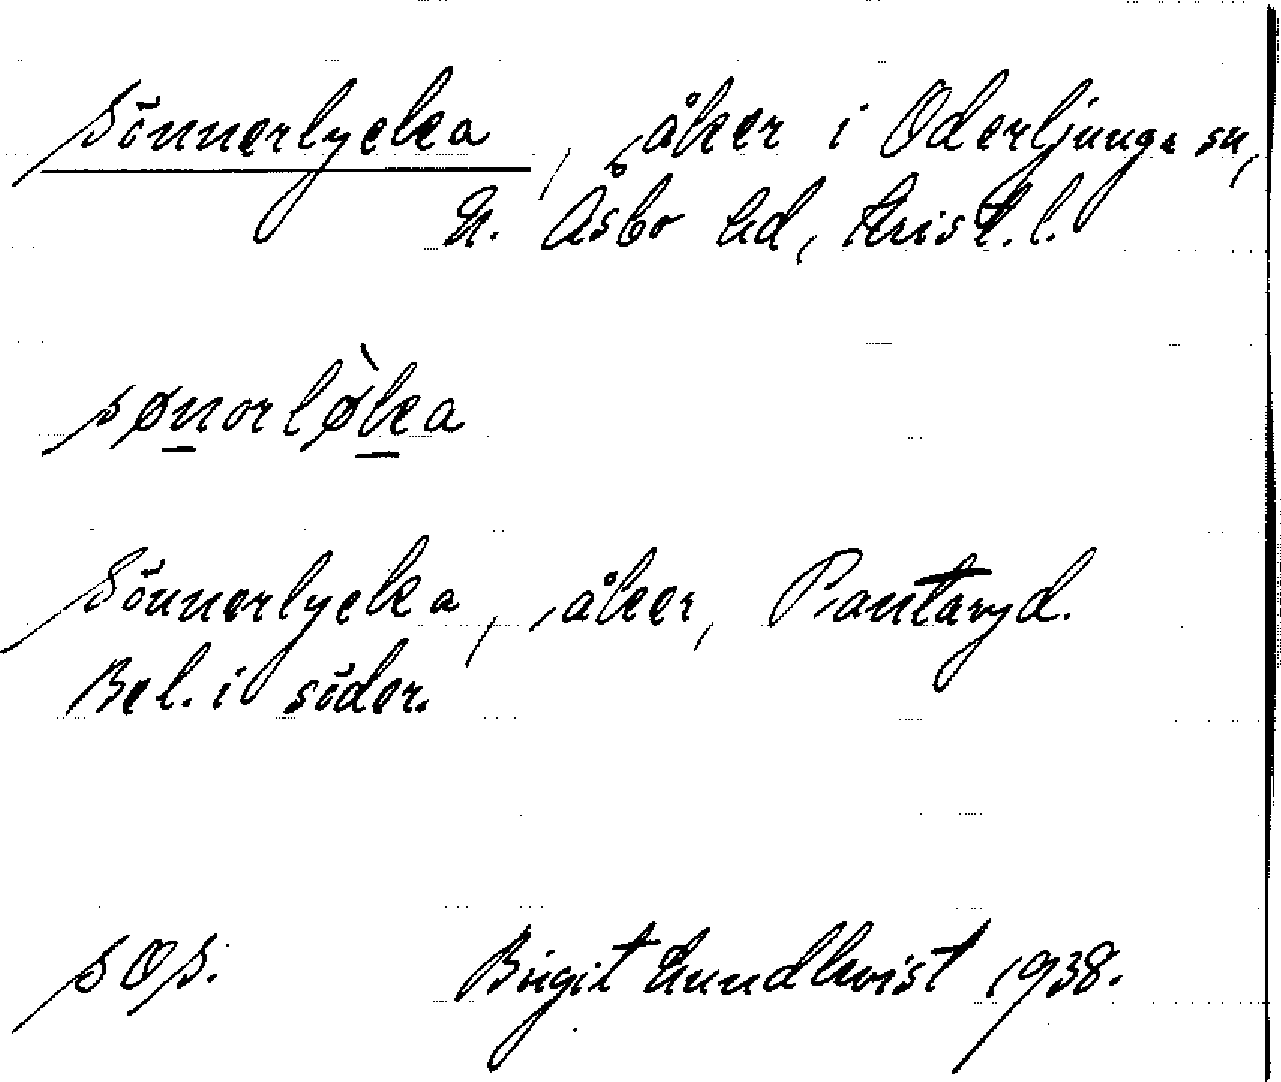 Sönnerlycka, åker i Oderljunga sn,
N. Åsbo hd, Krist. l.
sønorlø̀ka
Sönnerlycka, åker, Pantaryd.
Bel. i söder.
SOS. Birgit Lundkvist 1938.